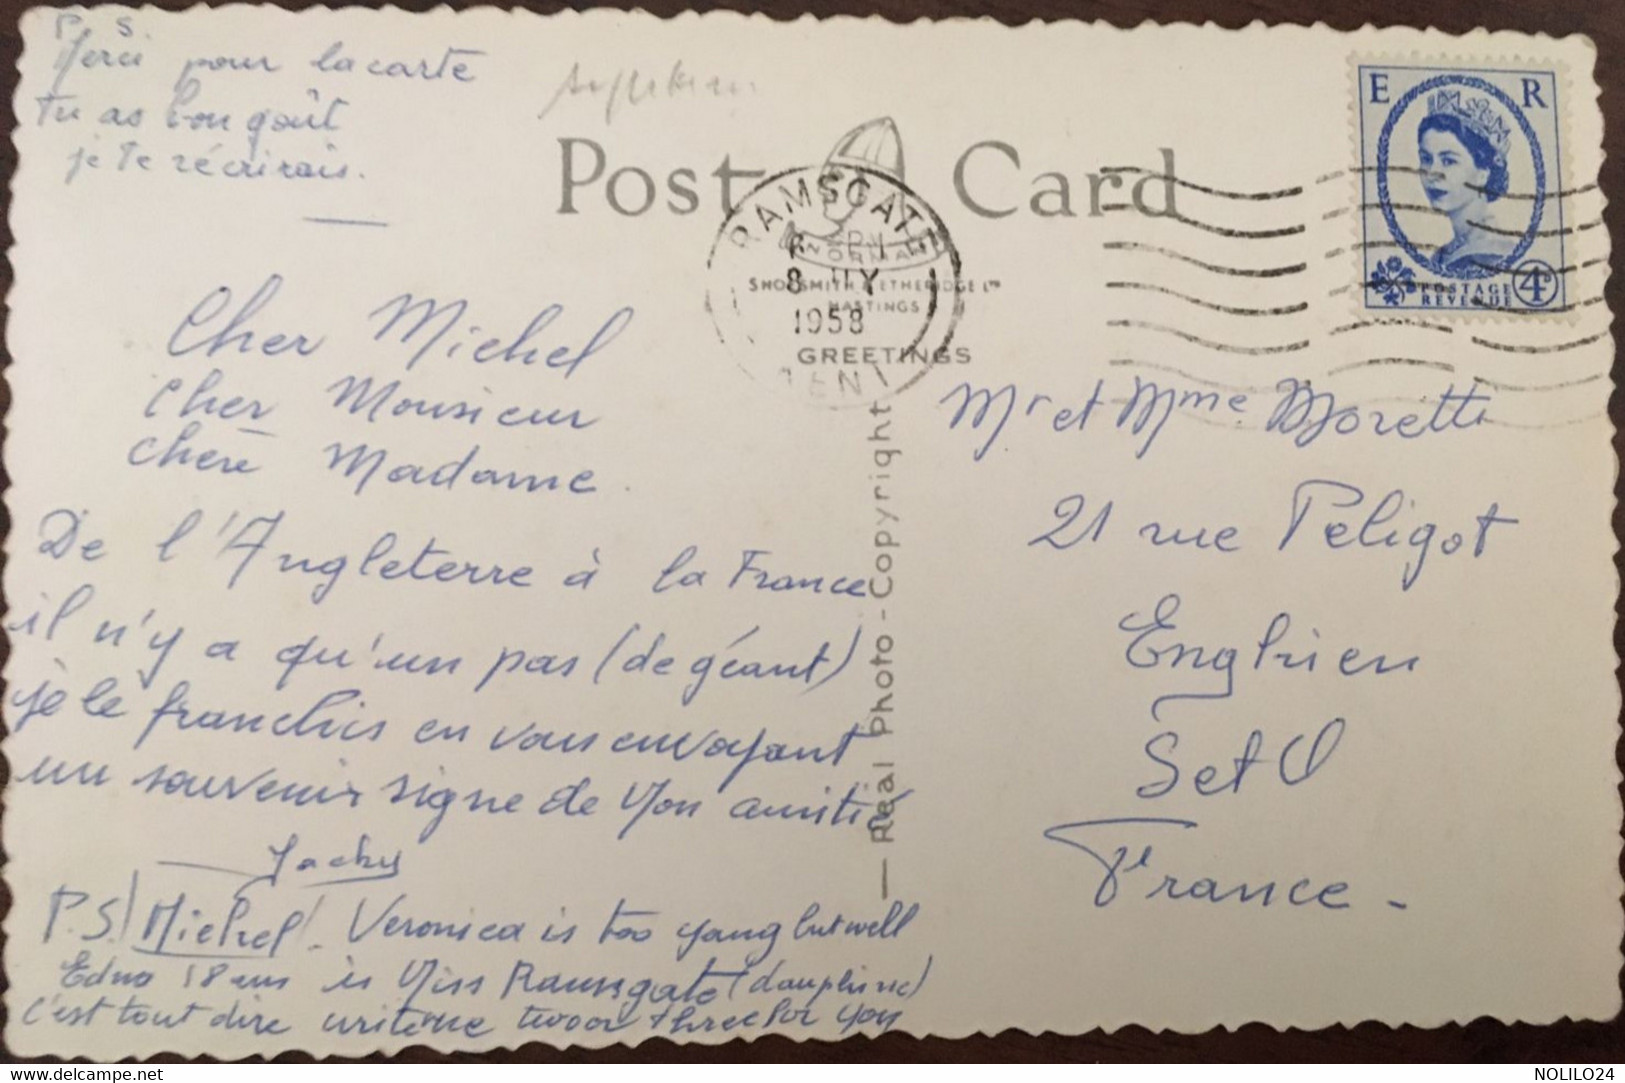 P. S.
Merci pour la carte
tu as bon goût
je te récrirais.
Post Card
NORMAN
SHOESMITH & ETHERIDGE LTD
HASTINGS
GREETINGS
RAMSGATE
8 JLY
1958
E R
POSTAGE
REVENUE
4D
Cher Michel
Cher Monsieur
Chère Madame.
De l'Angleterre à la France
il n'y a qu'un pas (de géant)
je le franchis en vous envoyant
un souvenir signe de Mon amitié
Jacky
P.S. Michel! Veronica is too yang but well
Edna 18 ans is Miss Ramsgate (dauphine)
c'est tout dire two or three for you
— Real Photo - Copyright
Mr et Mme Moretti
21 rue Peligot
Enghien
S et O
France -
NOLILO24